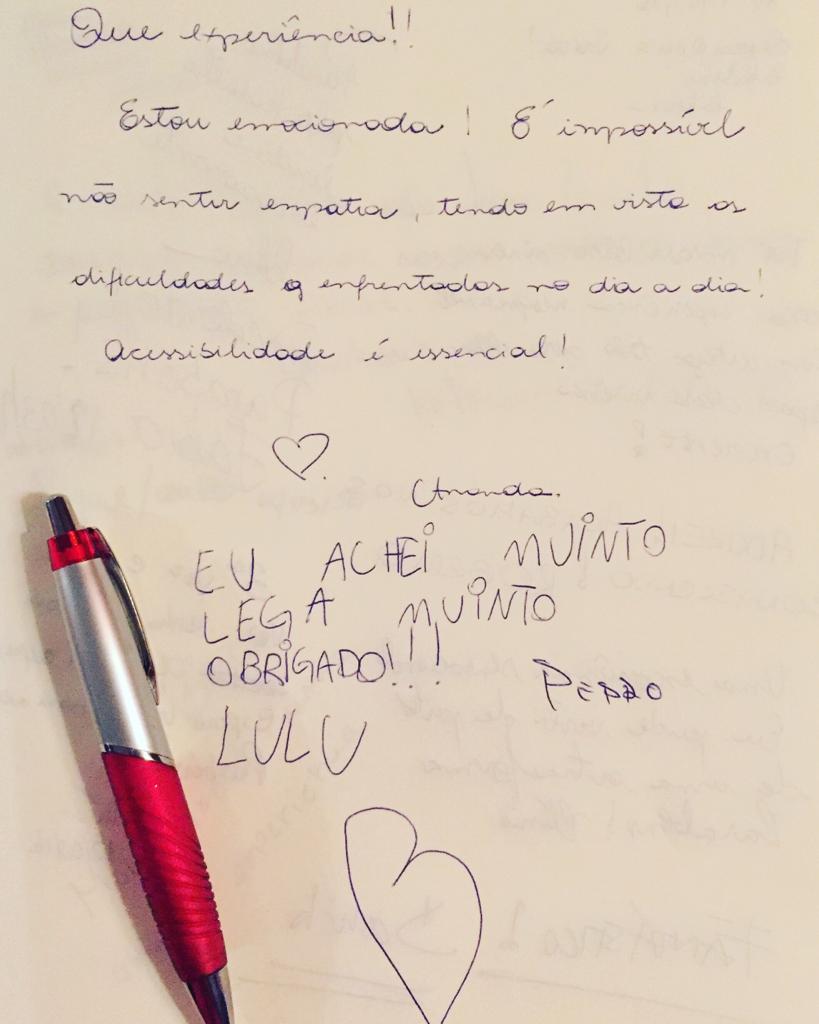 Que experiência!!
Estou emocionada! É impossível
não sentir empatia, tendo em vista as
dificuldades q enfrentadas no dia a dia!
Acessibilidade é essencial!
Ananda.
EU ACHEI MUINTO
LEGA MUINTO
OBRIGADO!!!
PEDRO
LULU